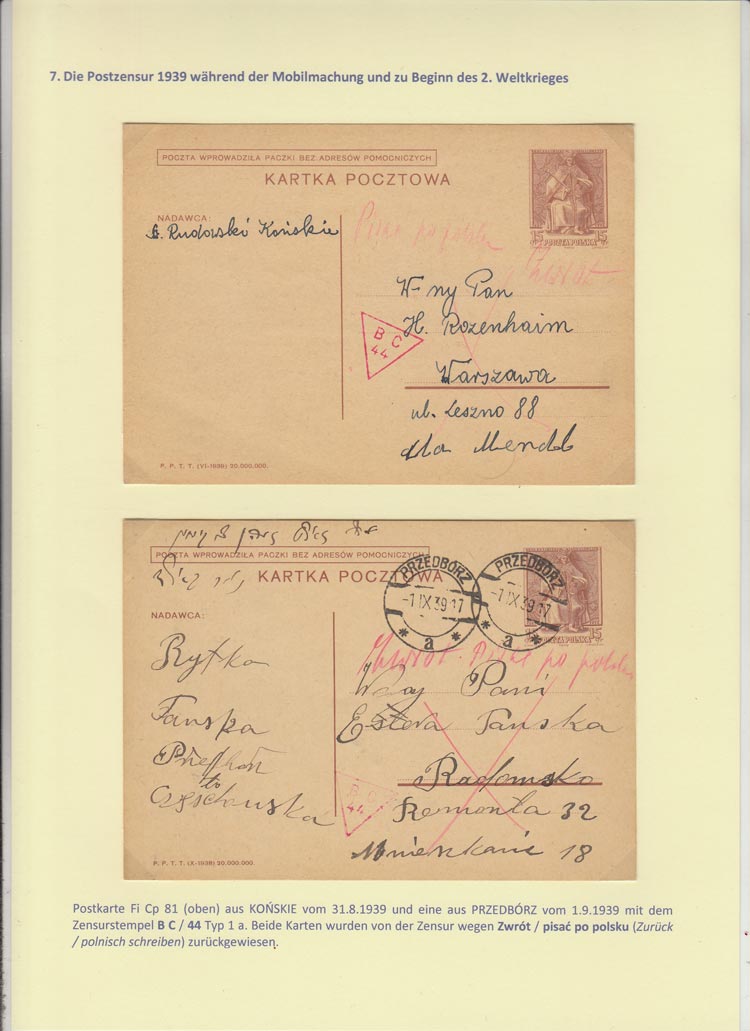 7. Die Postzensur 1939 während der Mobilmachung und zu Beginn des 2. Weltkrieges
POCZTA WPROWADZIŁA PACZKI BEZ ADRESÓW POMOCNICZYCH
KARTKA POCZTOWA
15 POCZTA POLSKA 15
NADAWCA:
Rudowski Końskie
Pisać po polsku
Zwrot
W-ny Pan
H. Rozenhaim
B C
44
Warszawa
ul. Leszno 88
dla Mendl
P. P. T. T. (VI-1939) 20.000.000.
POCZTA WPROWADZIŁA PACZKI BEZ ADRESÓW POMOCNICZYCH
KARTKA POCZTOWA
PRZEDBÓRZ
-1 IX 39 17
* a *
PRZEDBÓRZ
-1 IX 39 17
* a *
15
NADAWCA:
Zwrot. Pisać po polsku
Rytka
Pani
Tanska
Estera Tanska
Radomsko
B C
44
Remonta 32
Mieszkanie 18
P. P. T. T. (X-1938) 20.000.000.
Postkarte Fi Cp 81 (oben) aus KOŃSKIE vom 31.8.1939 und eine aus PRZEDBÓRZ vom 1.9.1939 mit dem
Zensurstempel B C / 44 Typ 1 a. Beide Karten wurden von der Zensur wegen Zwrót / pisać po polsku (Zurück
/ polnisch schreiben) zurückgewiesen.